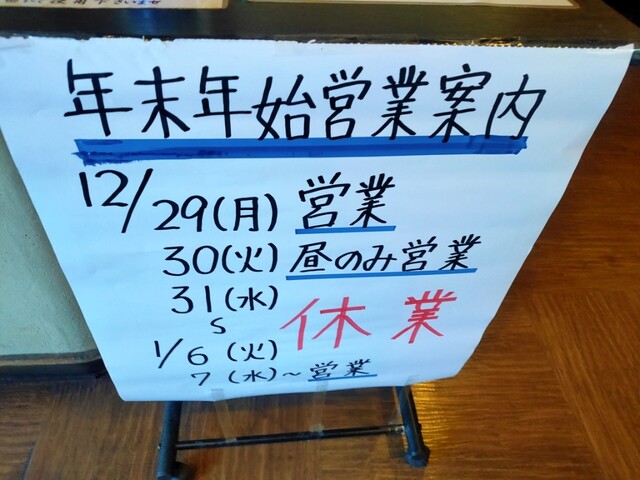 年末年始営業案内
12/29(月) 営業
30(火) 昼のみ営業
31(水)
S 休業
1/6(火)
7(水)~営業